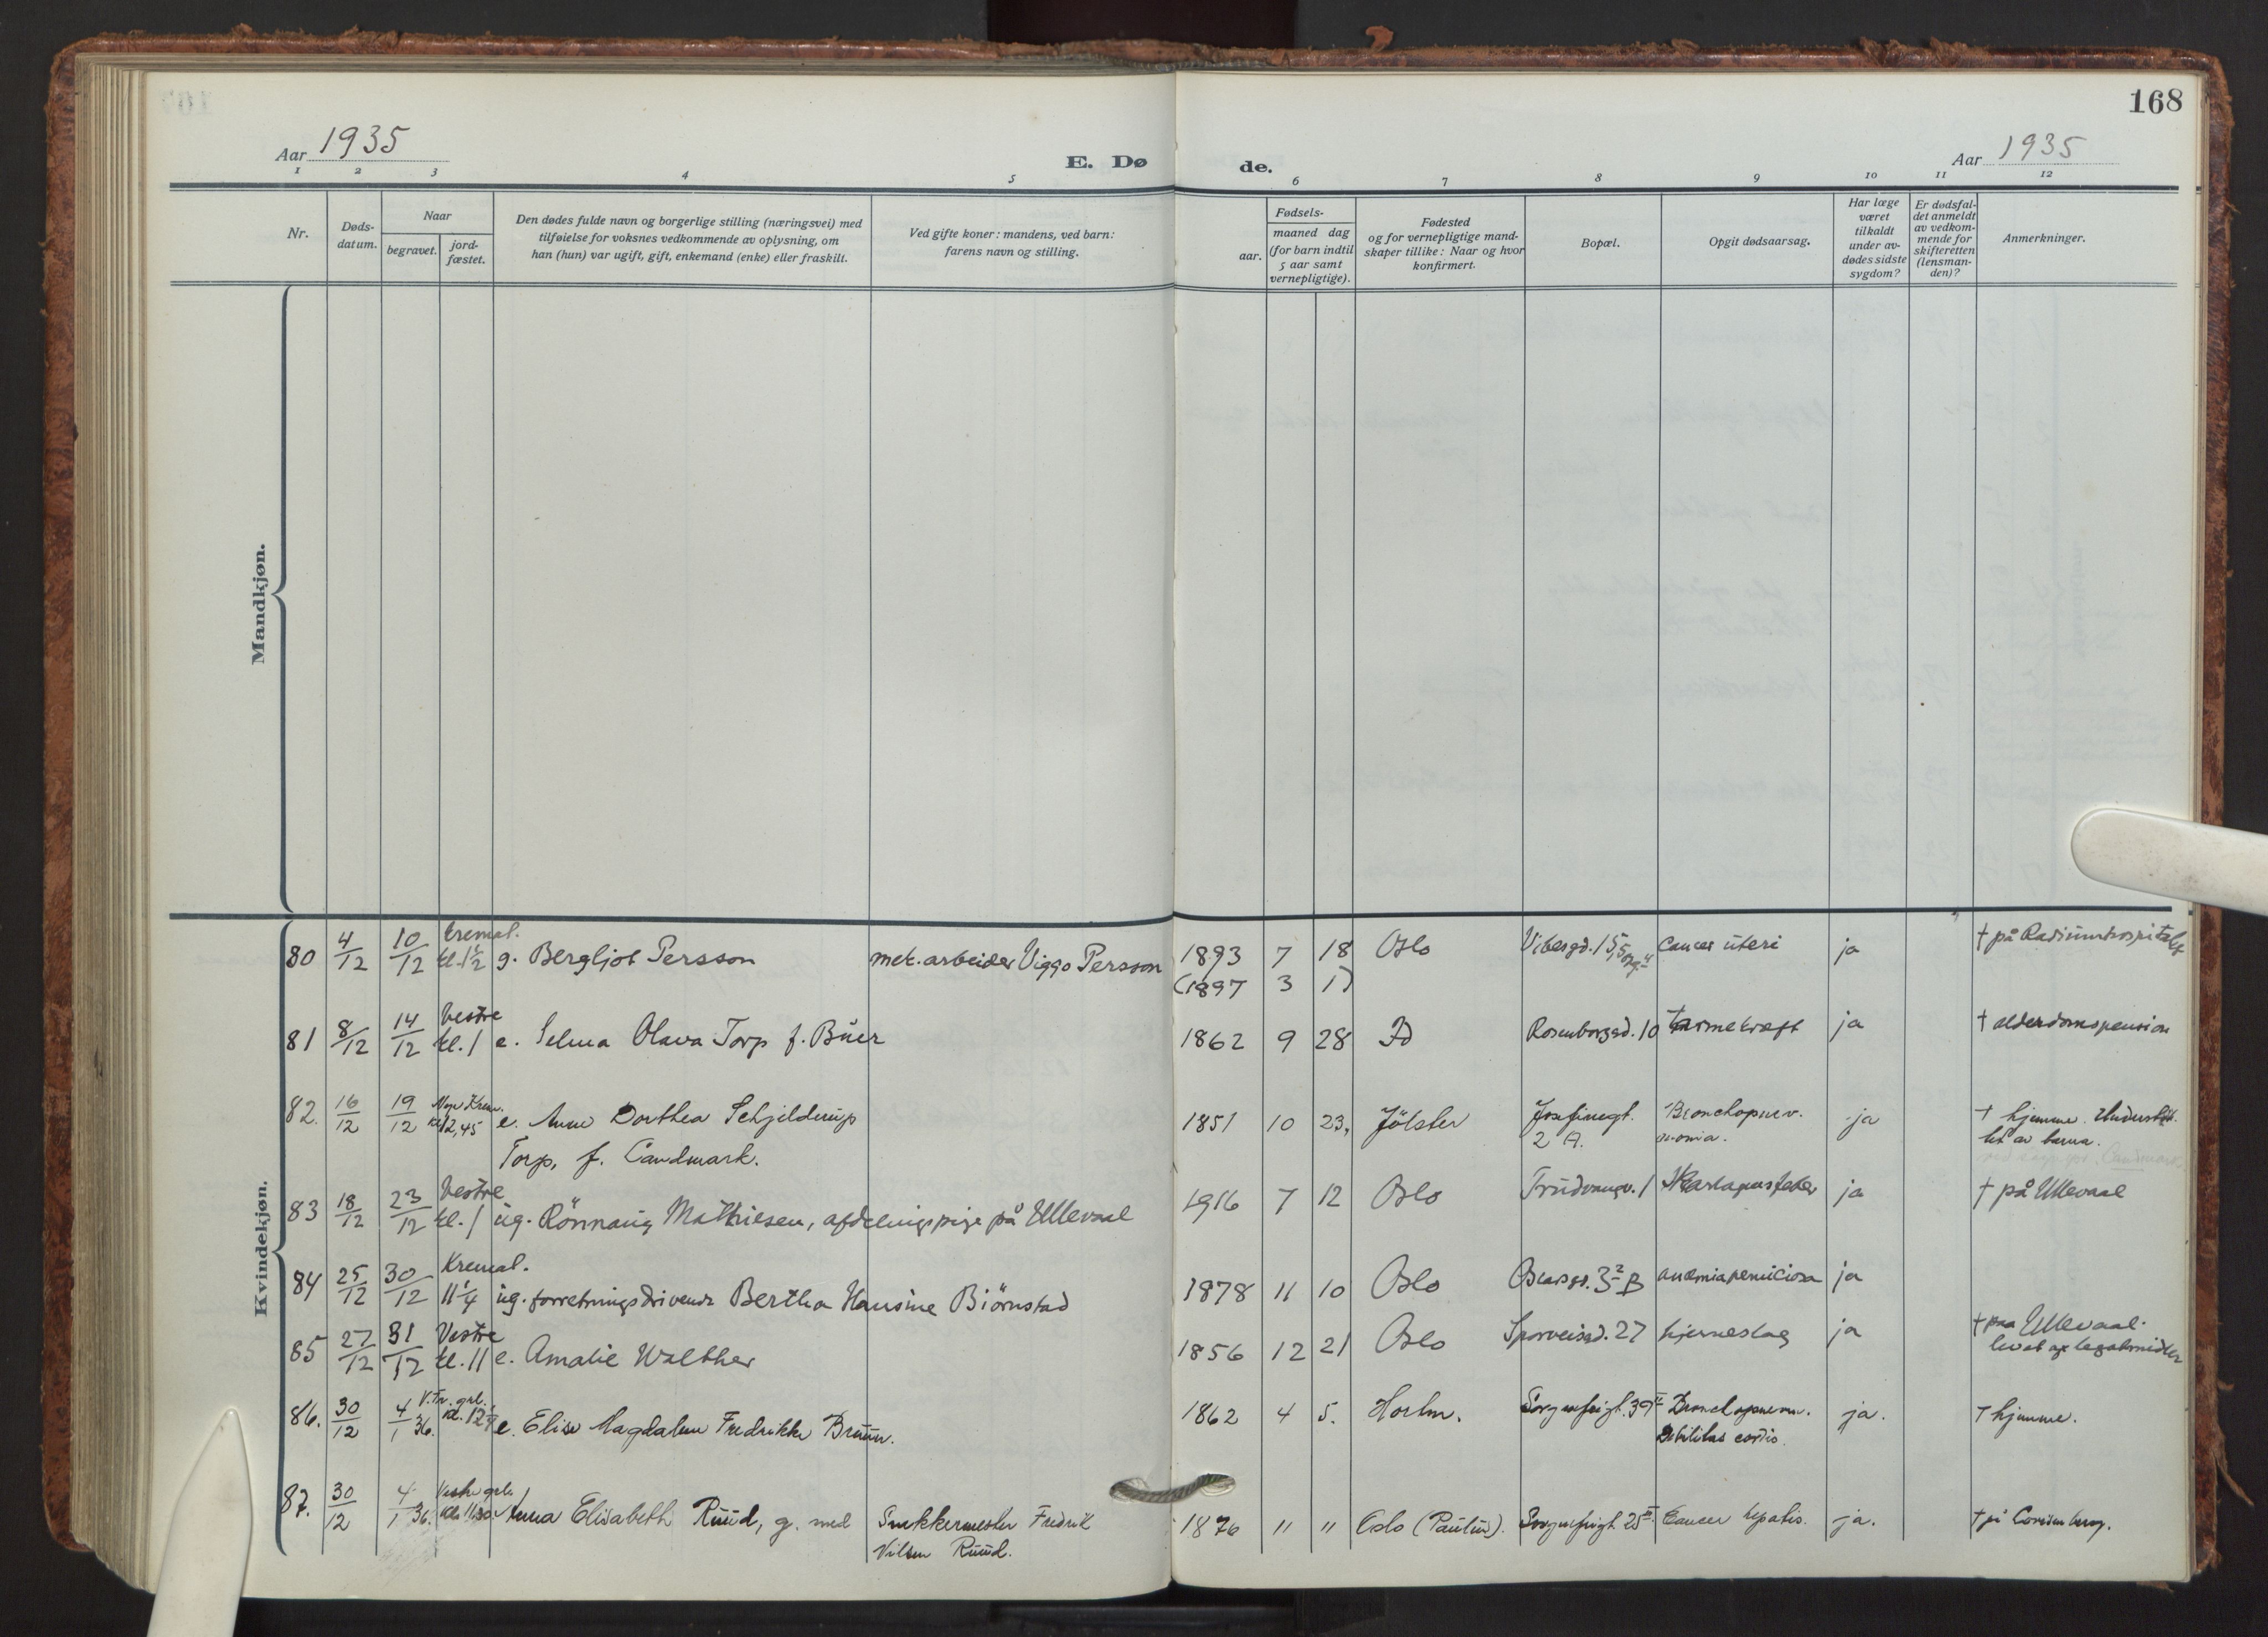 168
Aar 1935
E. Dø de.
Aar 1935
1 2 3 4 5 6 7 8 9 10 11 12
Nr.
Døds-
datum.
Naar
begravet.
jord-
fæstet.
Den dødes fulde navn og borgerlige stilling (næringsvei) med
tilføielse for voksnes vedkommende av oplysning, om
han (hun) var ugift, gift, enkemand (enke) eller fraskilt.
Ved gifte koner: mandens, ved barn:
farens navn og stilling.
Fødsels-
aar.
maaned dag
(for barn indtil
5 aar samt
vernepligtige).
Fødested
og for vernepligtige mand-
skaper tillike: Naar og hvor
konfirmert.
Bopæl.
Opgit dødsaarsag.
Har læge
været
tilkaldt
under av-
dødes sidste
sygdom?
Er dødsfal-
det anmeldt
av vedkom-
mende for
skifteretten
(lensman-
den)?
Anmerkninger.
Mandkjøn.
Kvindekjøn.
Kremat.
80 4/12 10/12 kl. 1½ g. Bergljot Persson mek. arbeider Viggo Persson 1893 7 18 Oslo Vibesgd. 15 Cancer uteri ja † på Radiumhospitalet
(1897 3 1)
Vestre
81 8/12 14/12 kl. 1 e. Selma Olava Torp f. Buer 1862 9 28 Id Rosenborggd. 10 tarmekræft ja † alderdomspension
82. 16/12 19/12 Nye Krem. kl. 12,45 e. Anne Dorthea Schjelderup 1851 10 23. Jölster Josefinegt. Bronchopnev- ja † hjemme. Understöt-
Torp, f. Landmark. 2 A. monia. tet av barna.
Vestre
83 18/12 23/12 kl. 1 ug. Rönnaug Mathiesen, afdelingspige på Ullevaal 1916 7 12 Oslo Trudvangv. 1 Skarlagensfeber ja † på Ullevaal
Kremat.
84 25/12 30/12 11¼ ug. forretningsdrivende Bertha Hansine Biörnstad 1878 11 10 Oslo Oscarsgd. 32 B anæmia perniciosa ja
Vestre
85 27/12 31/12 kl. 11 e. Amalie Walther 1856 12 21 Oslo Sporveisgd. 27 hjerneslag ja † paa Ullevaal.
levet af legatmidler
86. 30/12 4/1 36. kl. e. Elise Magdalene Fredrikke Bruun. 1862 4 5. Horten. Sorgenfrigt. 39 II Bronchopneum. ja. † hjemme.
Debilitas cordis.
87. 30/12 4/1 36. Vestre grl. kl. 11.30 Anna Elisabeth Ruud, g. med Snekkermester Fredrik 1876 " " Oslo (Paulus). Sorgenfrigt. 25 II. Cancer hepatis. ja. † på
Ruud.